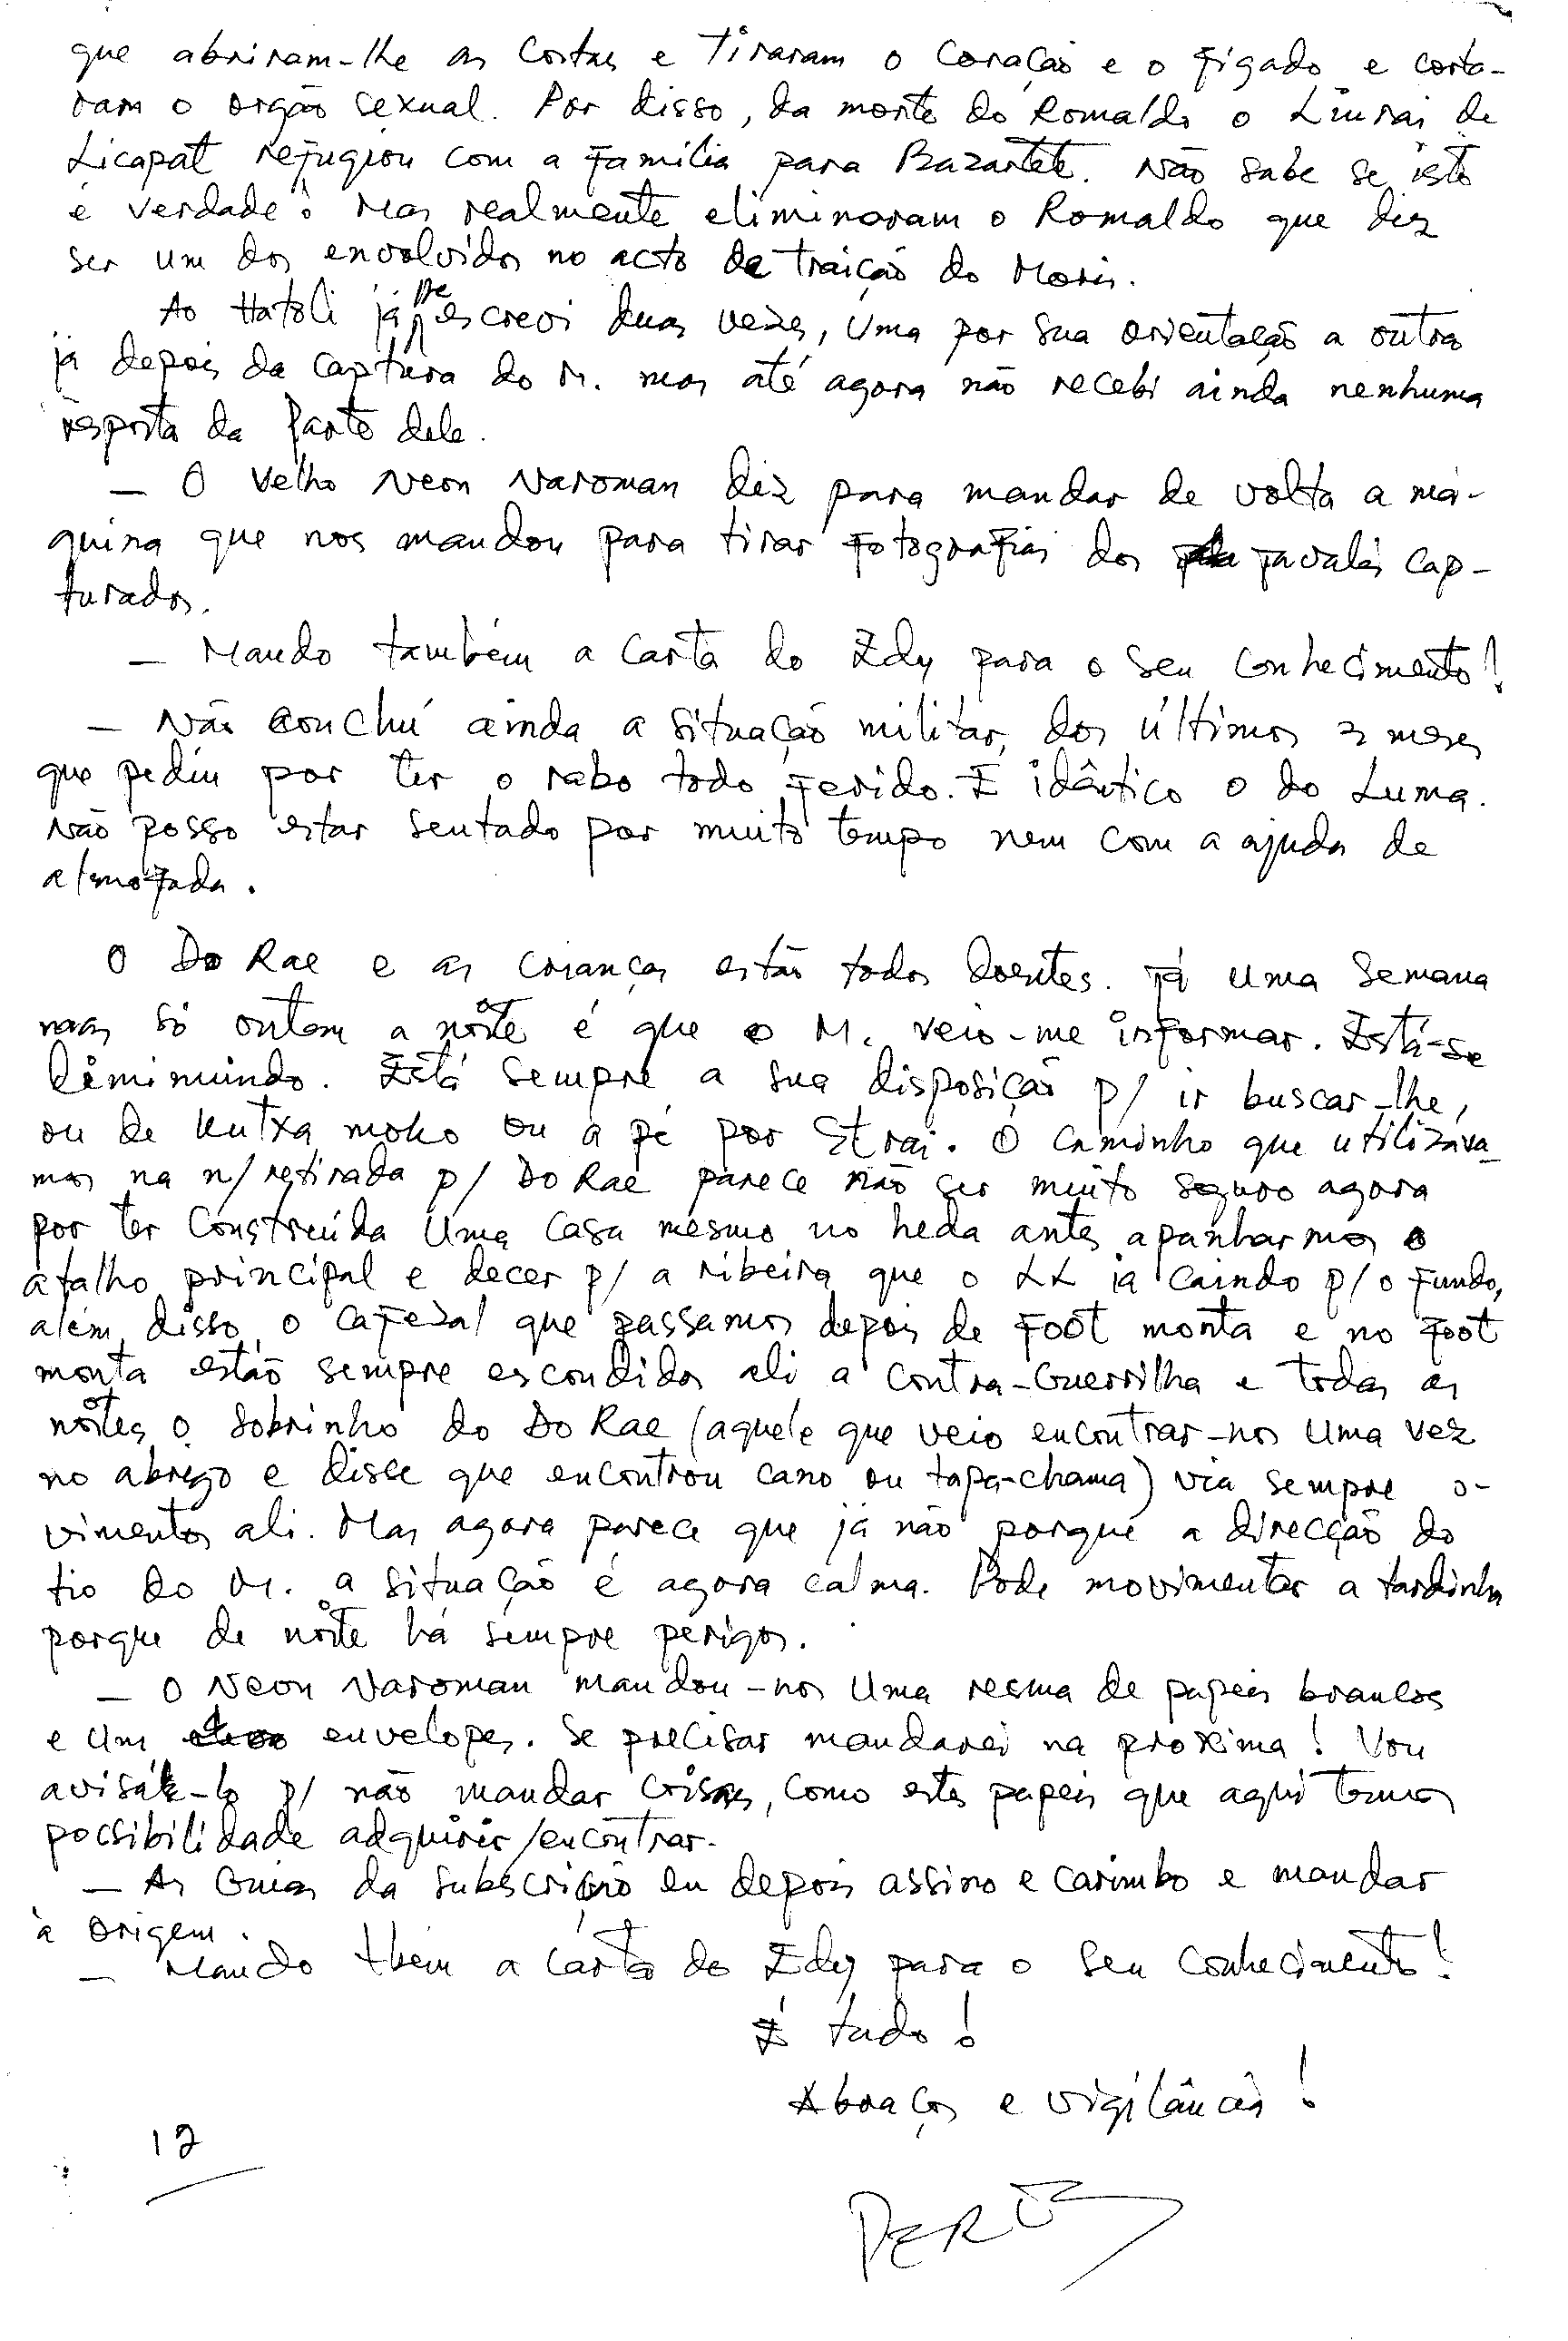 que abriram-lhe as costas e tiraram o coração e o figado e corta-
ram o orgão sexual. Por disso, da morte do Romaldo o Liurai de
Licapat refugiou com a familia para Bazartete. Não sabe se isto
é verdade? Mas realmente eliminaram o Romaldo que diz
ser um dos envolvidos no acto de traição do Moris.
Ao Hatoli já lhe escrevi duas vezes, uma por sua orientação a outra
já depois da captura do M. mas até agora não recebi ainda nenhuma
resposta da parte dele.
— O Velho Neon Naroman diz para mandar de volta a má-
quina que nos mandou para tirar fotografias dos javalis cap-
turados.
— Mando também a carta do Edy para o seu conhecimento!
— Não conclui ainda a situação militar, dos últimos 3 meses
que pediu por ter o rabo todo ferido. É idântico o do Luma.
Não posso estar sentado por muito tempo nem com a ajuda de
almofada.
O Do Rae e as crianças estão todos doentes. Já uma semana
mas só ontem a noite é que o M. veio-me informar. Está-se
diminuindo. Está sempre a sua disposição p/ ir buscar-lhe,
ou de kutxa moko ou a pé por Etrai. O caminho que utilizáva-
mos na n/ retirada p/ Do Rae parece não ser muito seguro agora
por ter construída uma casa mesmo no heda antes apanharmos o
atalho principal e decer p/ a ribeira que o LL ia caindo p/ o fundo,
além disso, o cafezal que passamos depois de Foot monta e no Foot
monta estão sempre escondidos ali a contra-Guerrilha e todas as
noites o sobrinho do Do Rae (aquele que veio encontrar-nos uma vez
no abrigo e disse que encontrou cano ou tapa-chama) via sempre o-
vimentos ali. Mas agora parece que já não porque a direcção do
tio do M. a situação é agora calma. Pode movimentar a tardinha
porque de noite há sempre perigos.
— O Neon Naroman mandou-nos uma resma de papeis brancos
e um envelopes. Se precisar mandarei na proxima! Vou
avisá-lo p/ não mandar coisas, como estes papeis que aqui temos
possibilidade adquirir/encontrar.
— As Guias da subscrição eu depois assino e carimbo e mandar
à origem.
— Mando tbém a carta do Edy para o seu conhecimento!
É tudo!
Abraços e vigilância!
12